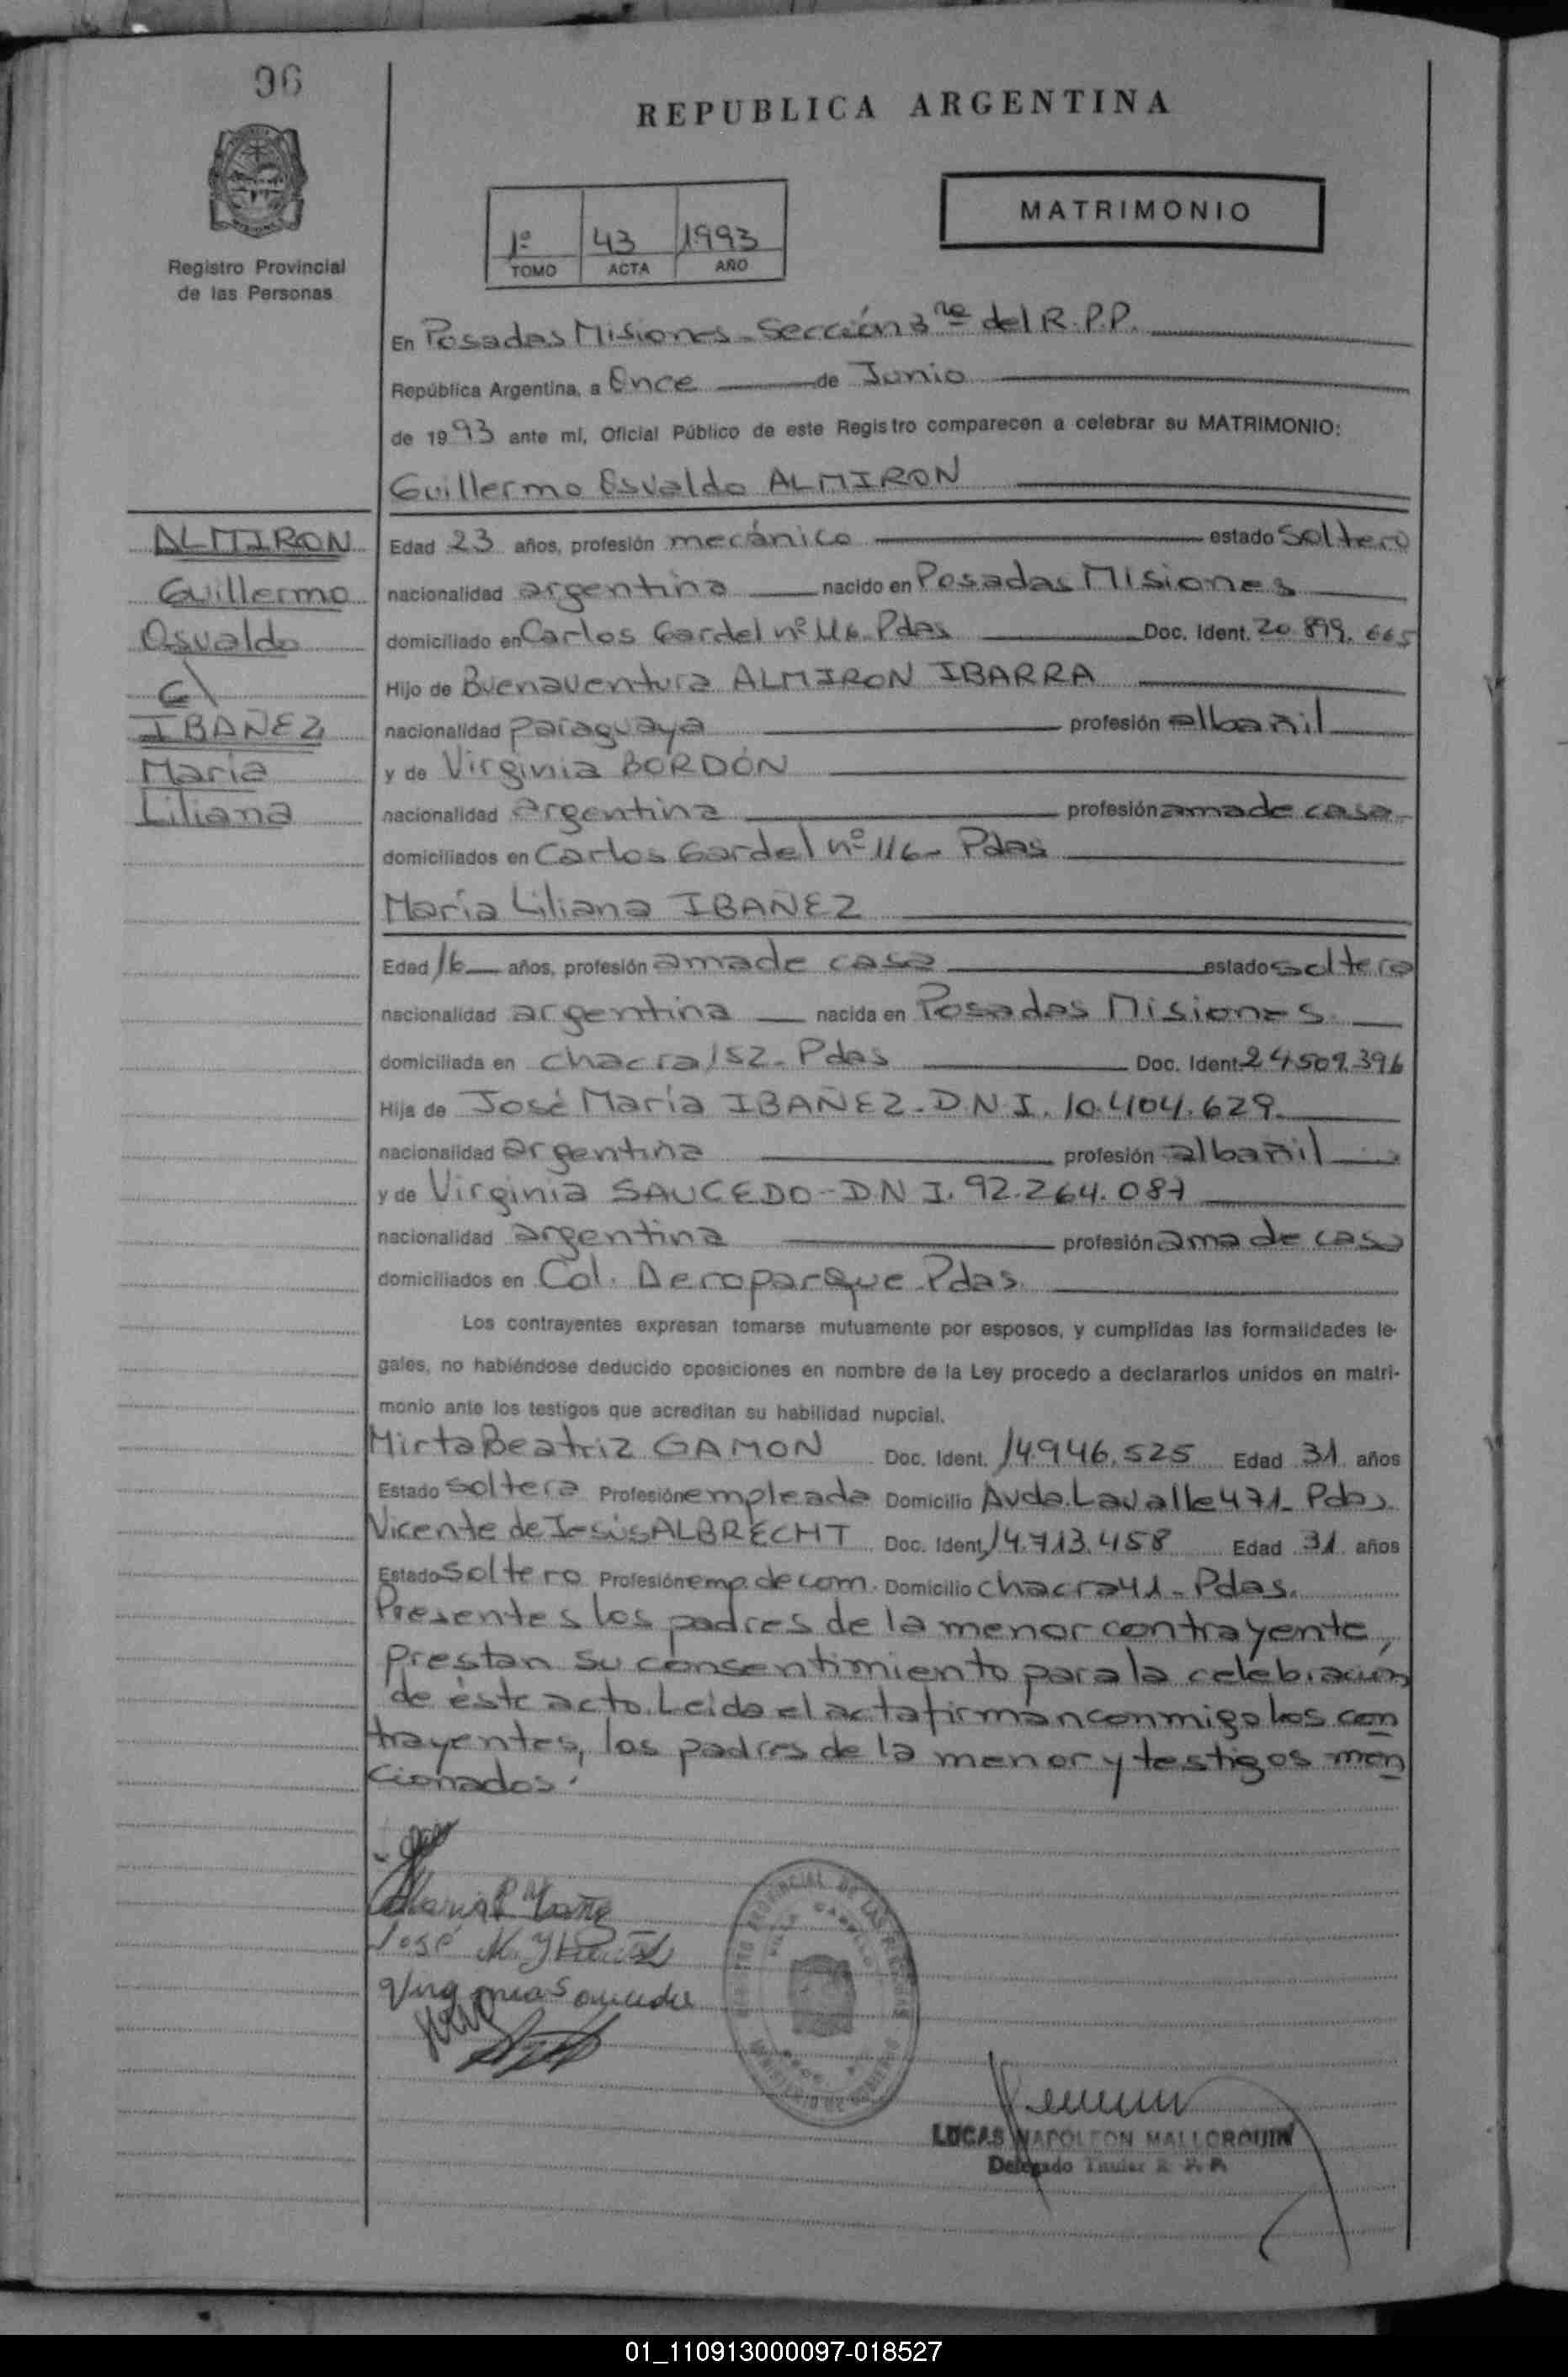 96
REPUBLICA ARGENTINA
MATRIMONIO
1º 43 1993
TOMO ACTA AÑO
Registro Provincial
de las Personas
En Posadas Misiones - Sección 3ra del R.P.P.
República Argentina, a Once de Junio
de 1993 ante mí, Oficial Público de este Registro comparecen a celebrar su MATRIMONIO:
Guillermo Osvaldo ALMIRON
ALMIRON
Guillermo
Osvaldo
c/
IBAÑEZ
María
Liliana
Edad 23 años, profesión mecánico estado soltero
nacionalidad argentina nacido en Posadas Misiones
domiciliado en Carlos Gardel nº 116. Pdas Doc. Ident. 20.899.665
Hijo de Buenaventura ALMIRON IBARRA
nacionalidad paraguaya profesión albañil
y de Virginia BORDÓN
nacionalidad argentina profesión ama de casa
domiciliados en Carlos Gardel nº 116 - Pdas
María Liliana IBAÑEZ
Edad 16 años, profesión ama de casa estado soltera
nacionalidad argentina nacida en Posadas Misiones
domiciliada en chacra 152 - Pdas Doc. Ident. 24.509.396
Hija de José María IBAÑEZ - D.N.I. 10.404.629
nacionalidad argentina profesión albañil
y de Virginia SAUCEDO - DNI. 92.264.087
nacionalidad argentina profesión ama de casa
domiciliados en Col. Aeroparque Pdas.
Los contrayentes expresan tomarse mutuamente por esposos, y cumplidas las formalidades le-
gales, no habiéndose deducido oposiciones en nombre de la Ley procedo a declararlos unidos en matri-
monio ante los testigos que acreditan su habilidad nupcial.
Mirta Beatriz GAMON Doc. Ident. 14.946.525 Edad 31 años
Estado soltera Profesión empleada Domicilio Avda. Lavalle 471 - Pdas
Vicente de Jesús ALBRECHT Doc. Ident. 14.713.458 Edad 31 años
Estado soltero Profesión emp. de com. Domicilio chacra 41 - Pdas.
Presentes los padres de la menor contrayente,
prestan su consentimiento para la celebración
de éste acto. Leída el acta firman conmigo los con
trayentes, los padres de la menor y testigos men
cionados.
José M. Ibañez
Virginia Saucedo
REGISTRO PROVINCIAL DE LAS PERSONAS
MINISTERIO DE GOBIERNO
LUCAS NAPOLEON MALLORQUIN
Delegado Titular R. P. P.
01_110913000097-018527